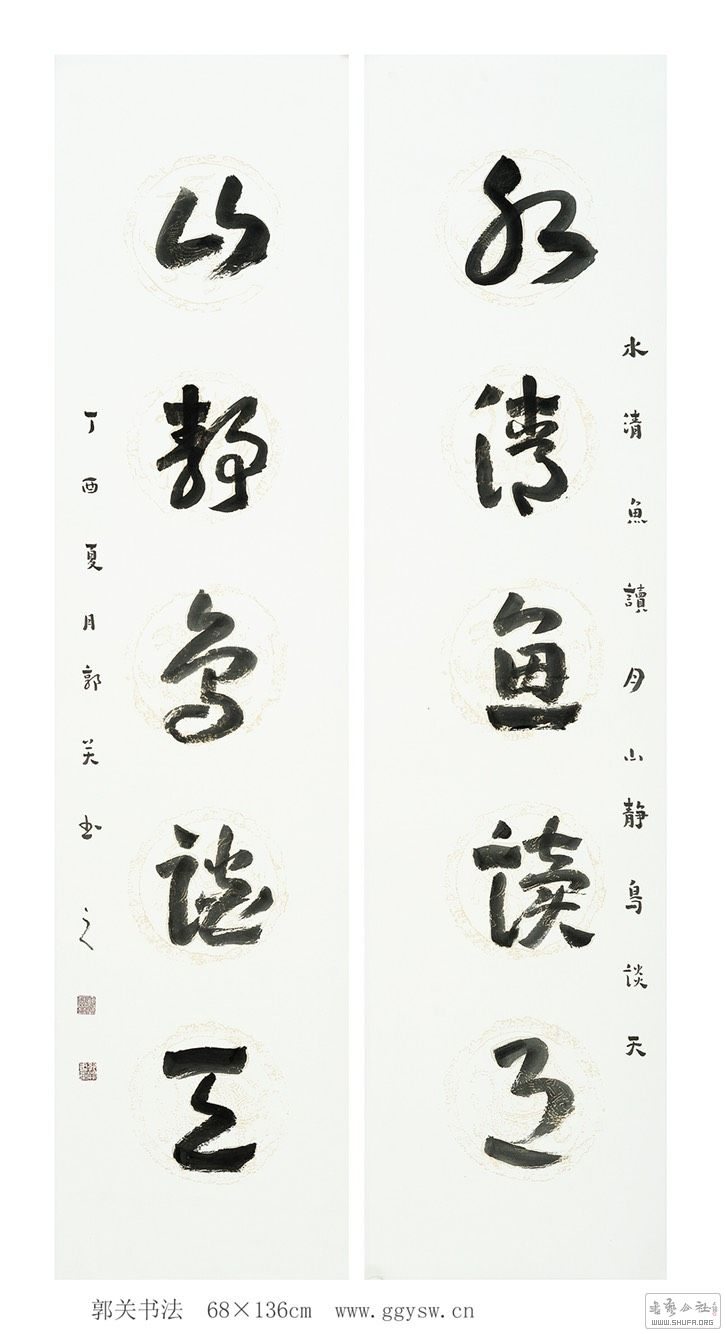 水清魚讀月山静鳥談天
水清鱼读月
山静鸟谈天
丁酉夏月郭关书之
郭关书法 68×136cm www.ggysw.cn
书艺公社
WWW.SHUFA.ORG